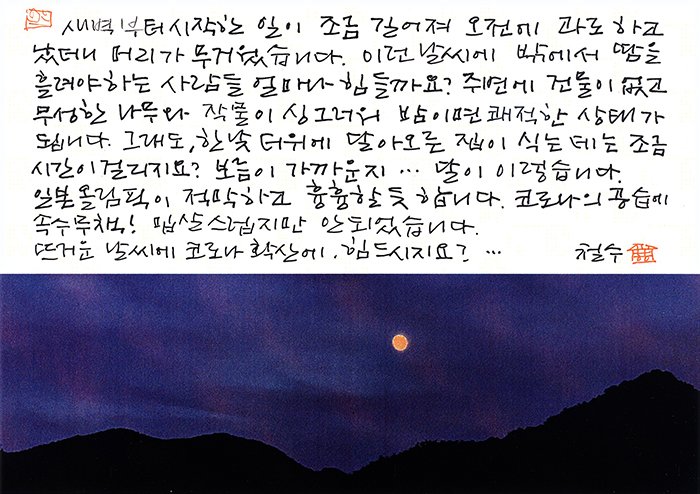 새벽부터 시작한 일이 조금 길어져 오전에 과로 하고
났더니 머리가 무거웠습니다. 이런 날씨에 밖에서 땀을
흘려야 하는 사람들 얼마나 힘들까요? 주변에 건물이 없고
무성한 나무와 작물이 싱그러워 밤이면 쾌적한 상태가
됩니다. 그래도, 한낮 더위에 달아오른 집이 식는 데는 조금
시간이 걸리지요? 보름이 가까운지 … 달이 이렇습니다.
일본올림픽이 적막하고 흉흉할 듯 합니다. 코로나의 공습에
속수무책! 밉살스럽지만 안되었습니다.
뜨거운 날씨에 코로나 확산에, 힘드시지요? …
철수